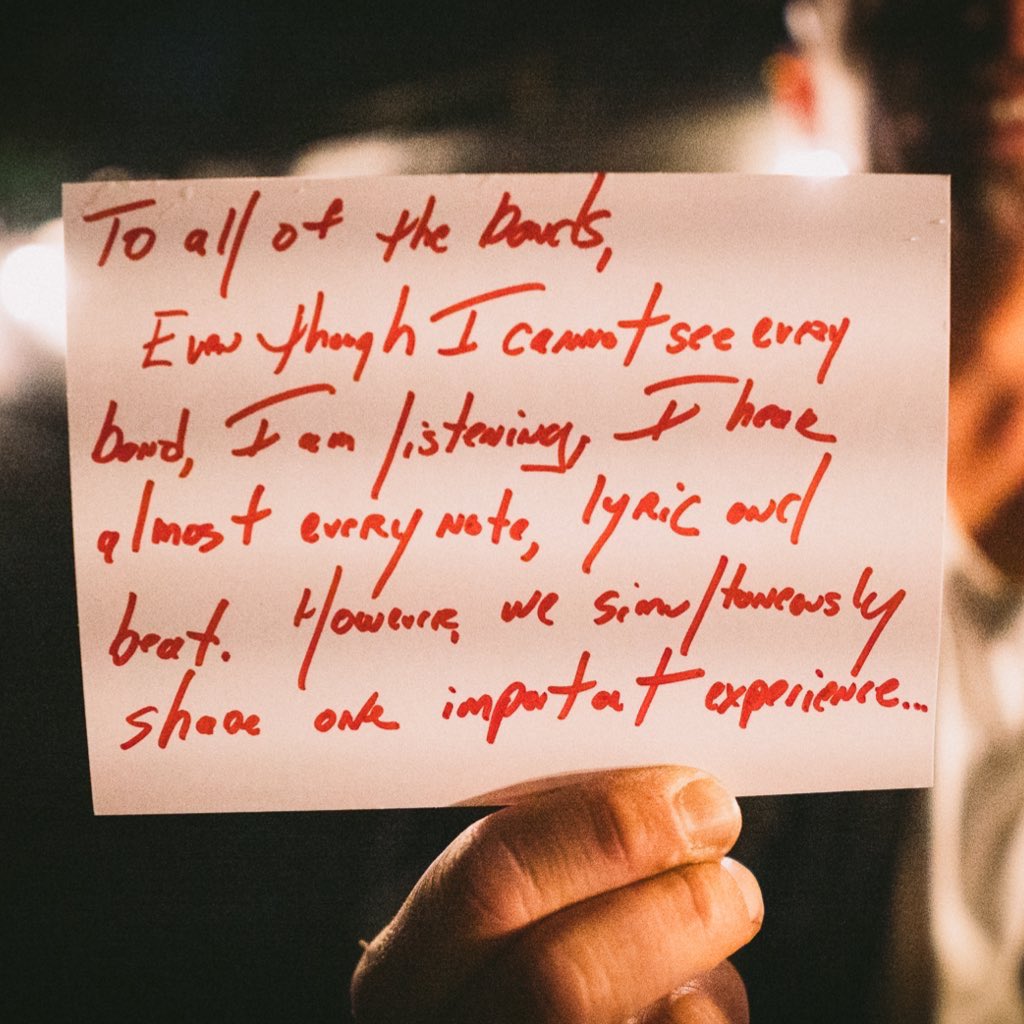 To all of the bands,
Even though I cannot see every
band, I am listening, I hear
almost every note, lyric and
beat. However, we simultaneously
share one important experience...